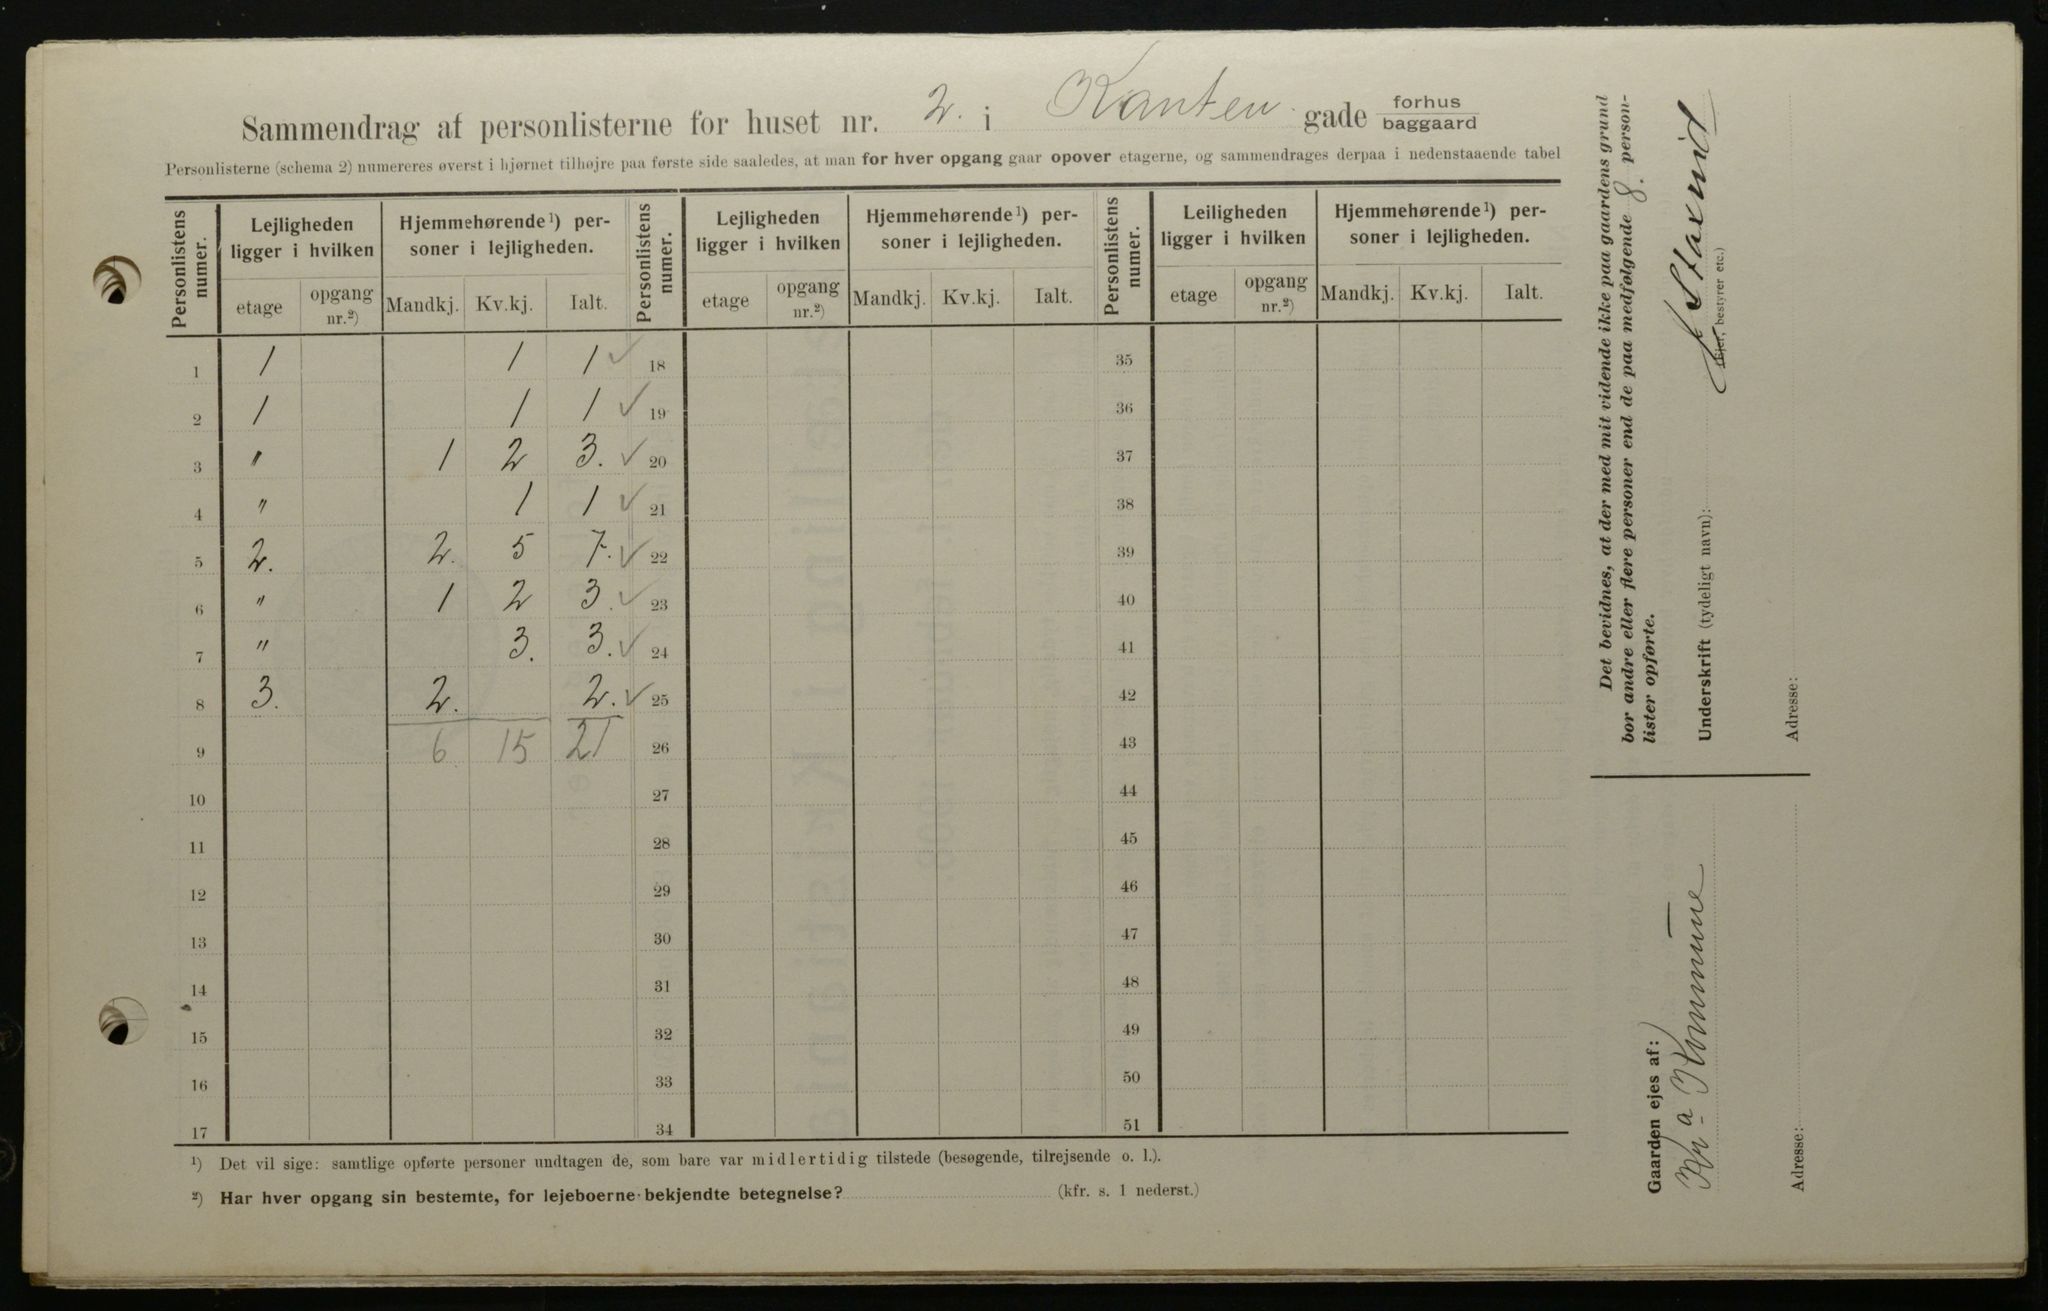 Sammendrag af personlisterne for huset nr. 2. i Kanten gade forhus baggaard
Personlisterne (schema 2) numereres øverst i hjørnet tilhøjre paa første side saaledes, at man for hver opgang gaar opover etagerne, og sammendrages derpaa i nedenstaaende tabel
Personlistens numer. Lejligheden ligger i hvilken Hjemmehørende¹) personer i lejligheden. Personlistens numer. Lejligheden ligger i hvilken Hjemmehørende¹) personer i lejligheden. Personlistens numer. Leiligheden ligger i hvilken Hjemmehørende¹) personer i lejligheden.
etage opgang nr.²) Mandkj. Kv.kj. Ialt. etage opgang nr.²) Mandkj. Kv.kj. Ialt. etage opgang nr.²) Mandkj. Kv.kj. Ialt.
1 1 1 1 ✓ 18 35
2 1 1 1 ✓ 19 36
3 " 1 2 3. ✓ 20 37
4 " 1 1 ✓ 21 38
5 2. 2. 5 7. ✓ 22 39
6 " 1 2 3. ✓ 23 40
7 " 3. 3. ✓ 24 41
8 3. 2. 2. ✓ 25 42
9 6 15 21 26 43
10 27 44
11 28 45
12 29 46
13 30 47
14 31 48
15 32 49
16 33 50
17 34 51
¹) Det vil sige: samtlige opførte personer undtagen de, som bare var midlertidig tilstede (besøgende, tilrejsende o. l.).
²) Har hver opgang sin bestemte, for lejeboerne bekjendte betegnelse? (kfr. s. 1 nederst.)
Det bevidnes, at der med mit vidende ikke paa gaardens grund
bor andre eller flere personer end de paa medfølgende 8. person-
lister opførte.
Underskrift (tydeligt navn):
(Ejer, bestyrer etc.)
Adresse:
Gaarden ejes af:
Kr a Kommune
Adresse: